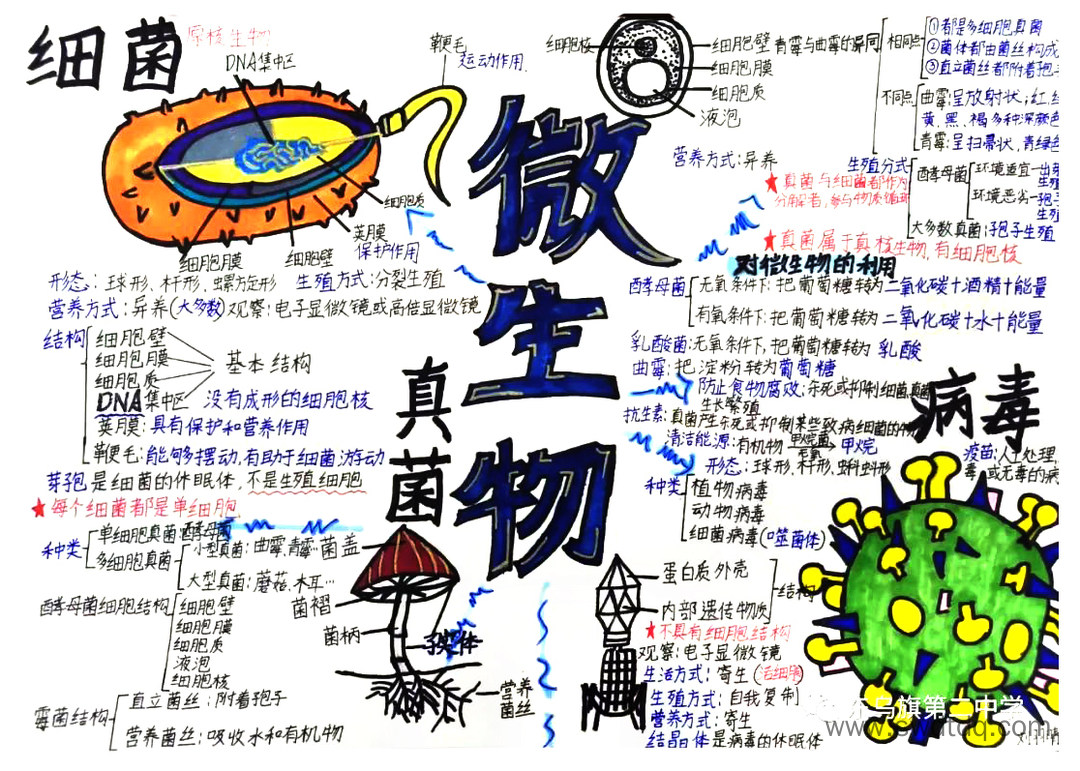 细菌
原核生物
DNA集中区
鞭毛
运动作用
细胞质
荚膜
保护作用
细胞壁
细胞膜
形态：球形、杆形、螺旋形 生殖方式：分裂生殖
营养方式：异养(大多数) 观察：电子显微镜或高倍显微镜
结构
细胞壁
细胞膜
细胞质
DNA集中区
基本结构
没有成形的细胞核
荚膜：具有保护和营养作用
鞭毛：能够摆动，有助于细菌游动
芽孢是细菌的休眠体，不是生殖细胞
★每个细菌都是单细胞
微生物
真菌
种类
单细胞真菌：酵母菌
多细胞真菌
小型真菌：曲霉、青霉…
大型真菌：蘑菇、木耳…
酵母菌细胞结构
细胞壁
细胞膜
细胞质
液泡
细胞核
霉菌结构
直立菌丝：附着孢子
营养菌丝：吸收水和有机物
菌盖
菌褶
菌柄
子实体
营养
菌丝
细胞核
细胞壁
细胞膜
细胞质
液泡
青霉与曲霉的异同
相同点
①都是多细胞真菌
②菌体都由菌丝构成
③直立菌丝都附着孢子
不同点
曲霉：呈放射状；红、
黄、黑、褐多种深颜色
青霉：呈扫帚状，青绿色
营养方式：异养
生殖分式
酵母菌
环境适宜—出芽
生殖
环境恶劣—孢子
生殖
大多数真菌：孢子生殖
★真菌与细菌都作为
分解者，参与物质循环
★真菌属于真核生物，有细胞核
对微生物的利用
酵母菌
无氧条件下：把葡萄糖转为二氧化碳+酒精+能量
有氧条件下：把葡萄糖转为二氧化碳+水+能量
乳酸菌：无氧条件下，把葡萄糖转为 乳酸
曲霉：把淀粉转为葡萄糖
防止食物腐败：杀死或抑制细菌真菌
生长繁殖
抗生素：真菌产生杀死或抑制某些致病细菌的物
清洁能源：有机物 甲烷菌 甲烷
病毒
疫苗：人工处理，
毒，或无毒的病
形态：球形、杆形、蝌蚪形
种类
植物病毒
动物病毒
细菌病毒(噬菌体)
蛋白质外壳
内部遗传物质
结构
★不具有细胞结构
观察：电子显微镜
生活方式：寄生(活细胞)
生殖方式：自我复制
营养方式：寄生
结晶体是病毒的休眠体
乌旗第二中学